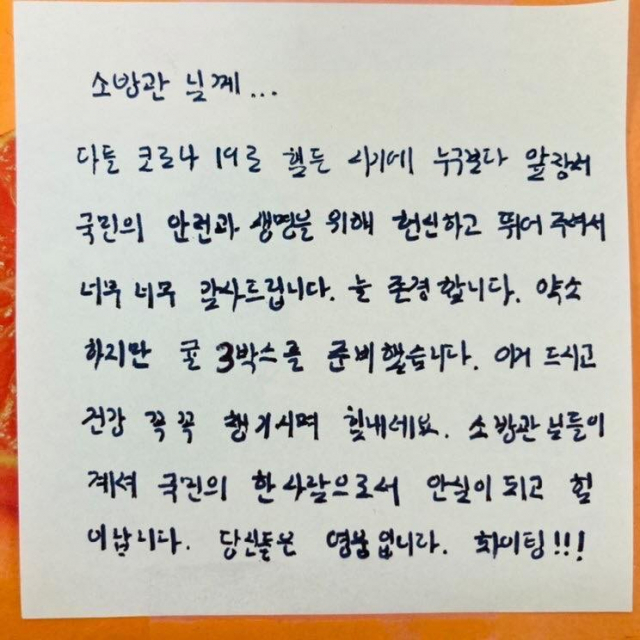 소방관 님께...
다들 코로나 19로 힘든 시기에 누구보다 앞장서
국민의 안전과 생명을 위해 헌신하고 뛰어 주셔서
너무 너무 감사드립니다. 늘 존경합니다. 약소
하지만 귤 3박스를 준비했습니다. 이거 드시고
건강 꼭꼭 챙기시며 힘내세요. 소방관님들이
계셔 국민의 한사람으로서 안심이 되고 힘
이납니다. 당신들은 영웅입니다. 화이팅!!!